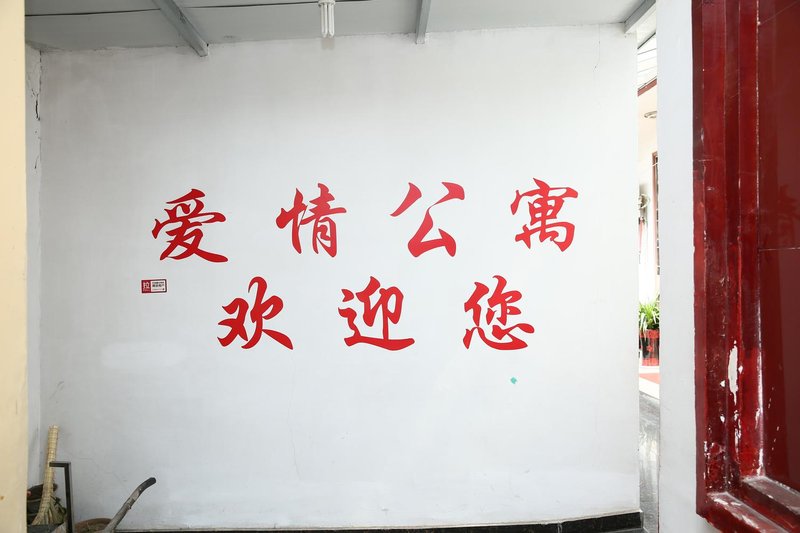 爱情公寓
欢迎您
拉